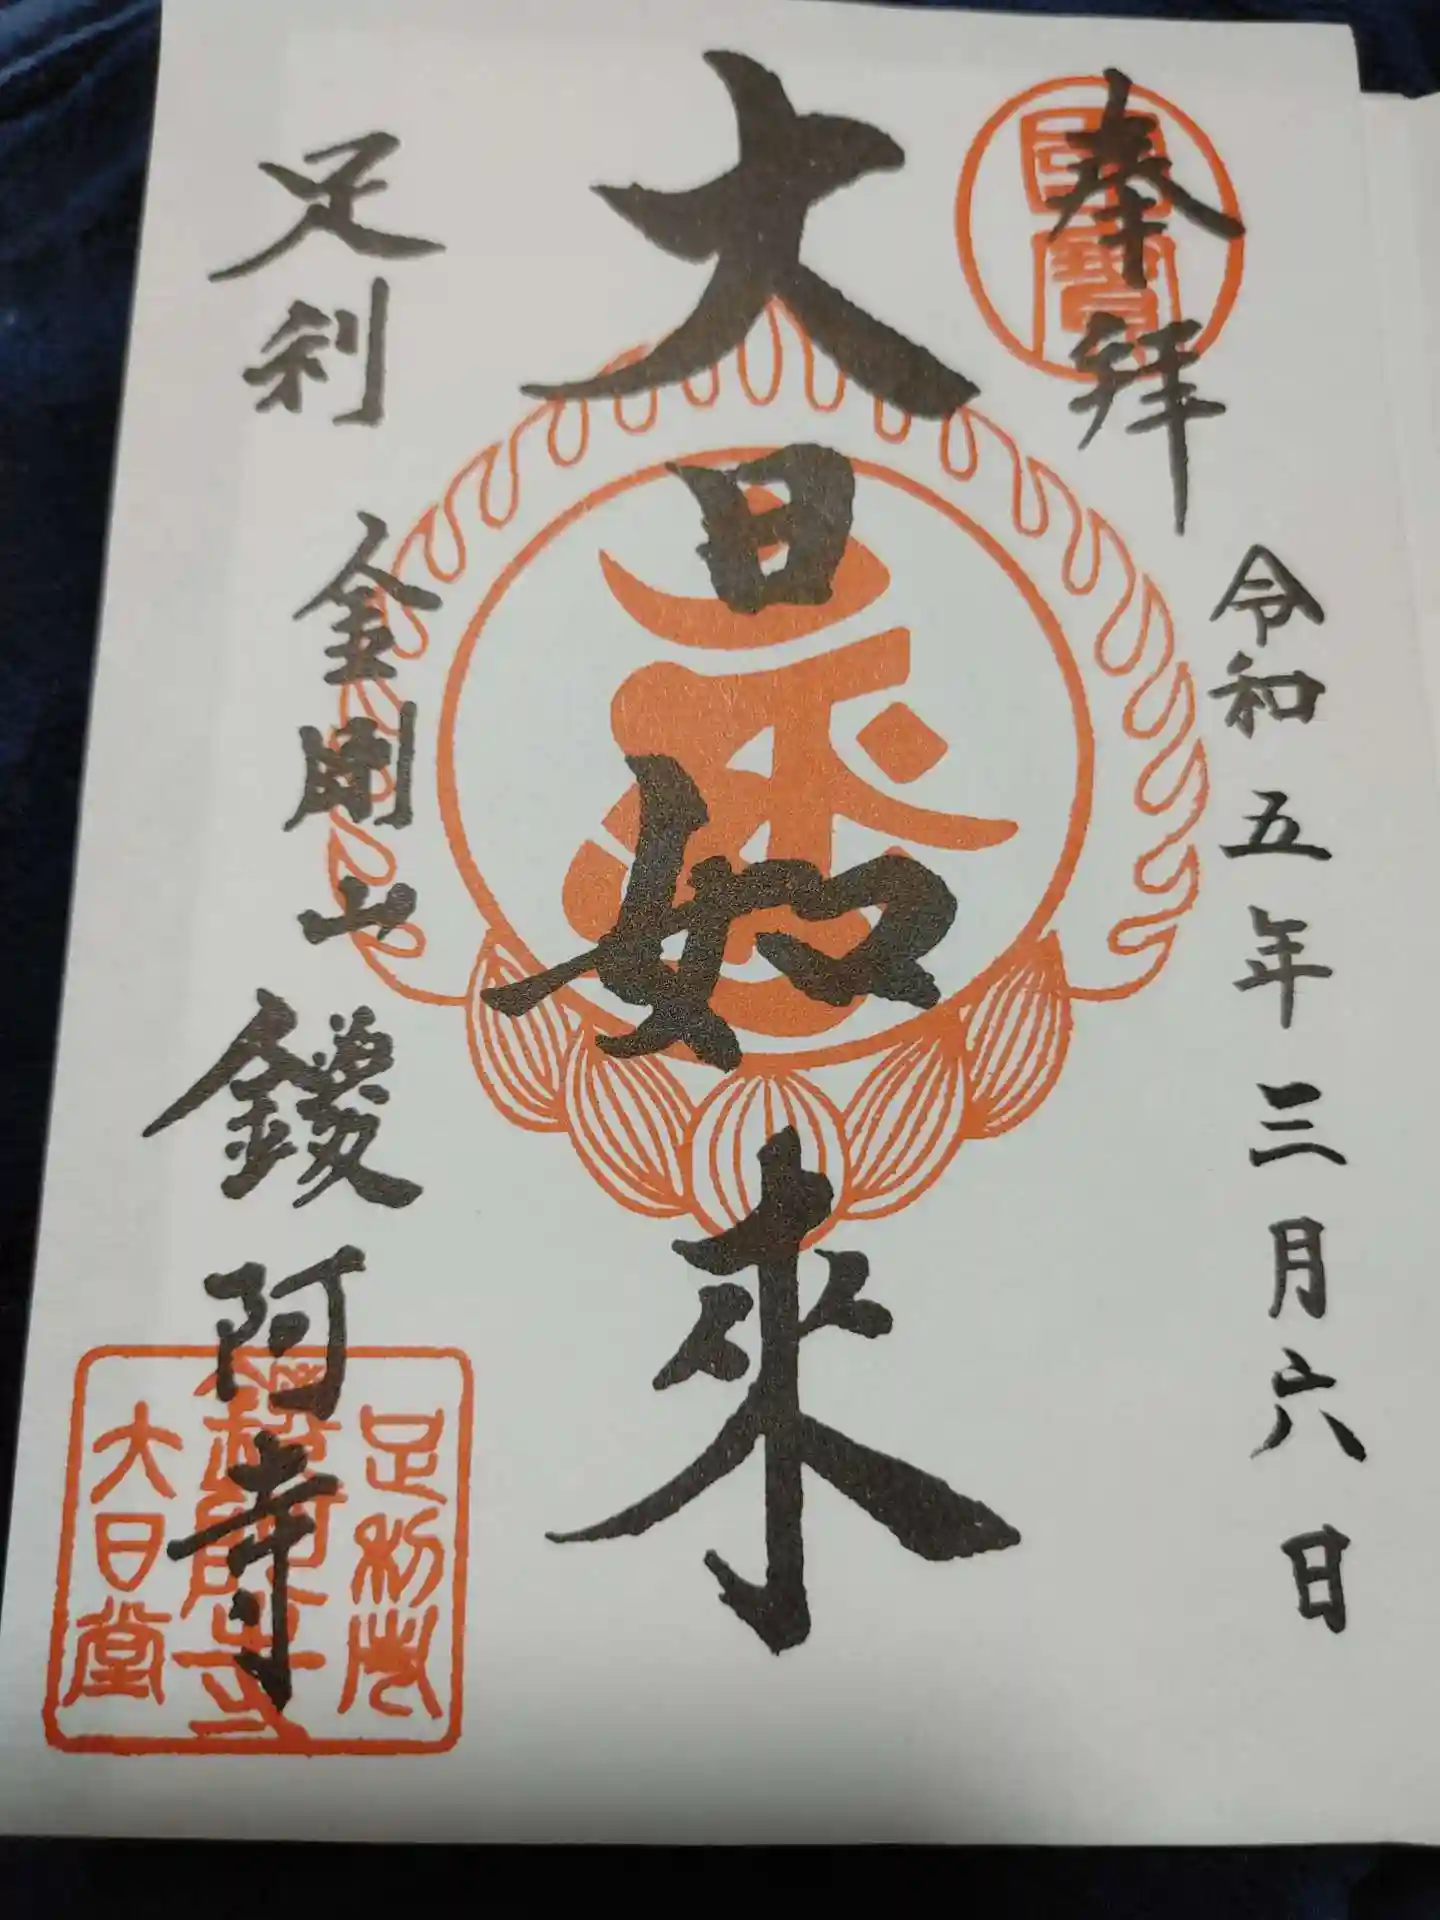 奉拝
國寶
令和五年三月六日
大日如来
足利 金剛山 鑁阿寺
足利庄
鑁阿寺
大日堂